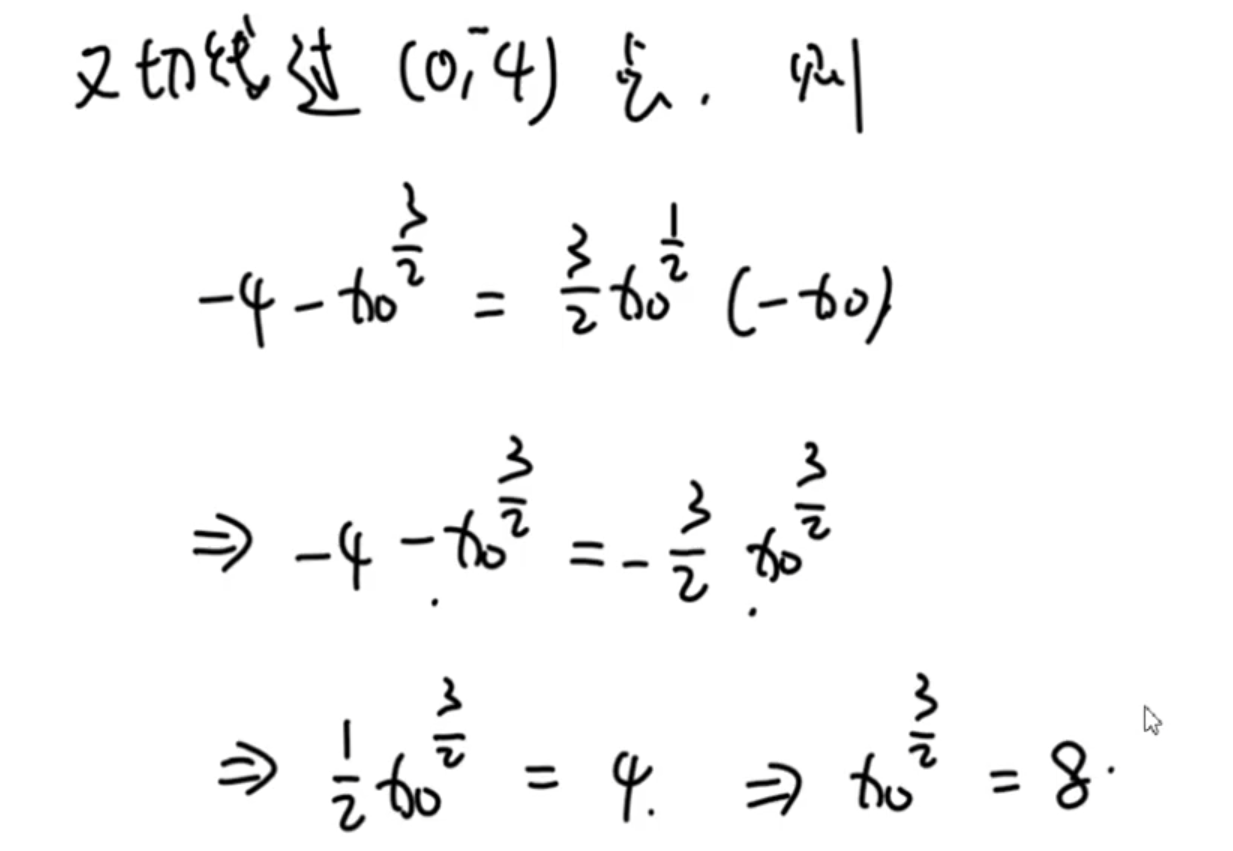 又切线过 (0,-4) 点. 则
-4 - x₀^(3/2) = 3/2 x₀^(1/2) (-x₀)
⇒ -4 - x₀^(3/2) = - 3/2 x₀^(3/2)
⇒ 1/2 x₀^(3/2) = 4. ⇒ x₀^(3/2) = 8.